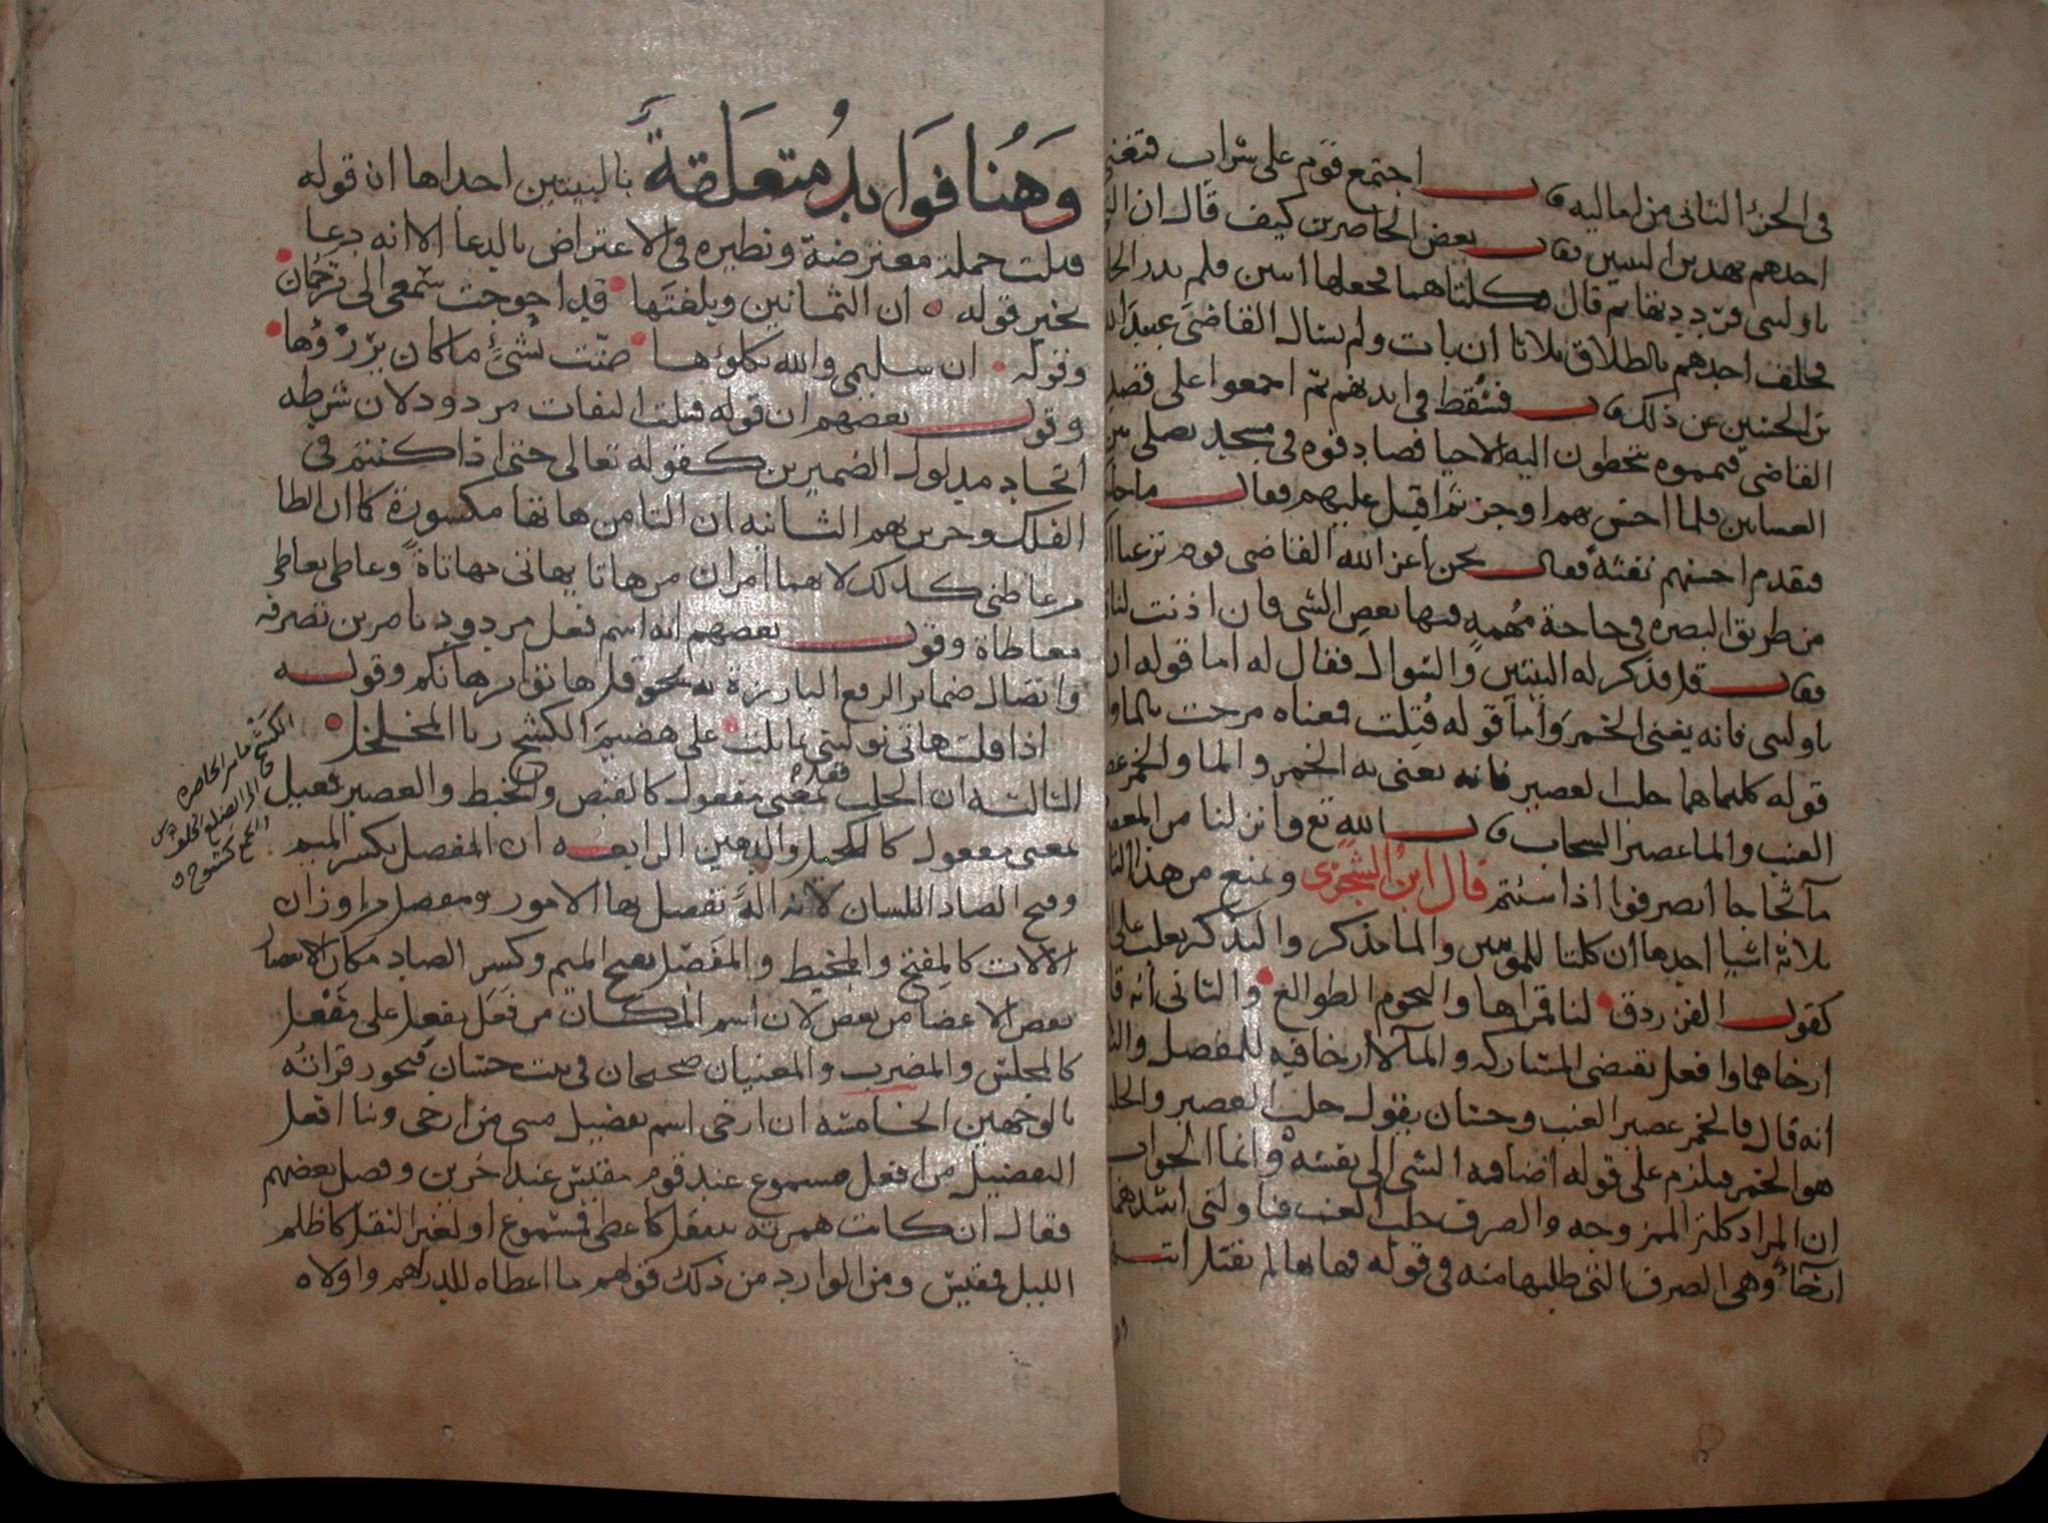 في الجزء الثاني من اماليه قال اجتمع قوم على شراب فتغنى
احدهم بهذين البيتين فقال بعض الحاضرين كيف قال ان
ناولتني فردد بها ثم قال كلتاهما فجعلها اثنين فلم يدر
فحلف احدهم بالطلاق ثلاثا ان بات ولم يسال القاضي عبيد الله
بن الحسين عن ذلك قال فسقط في ايديهم ثم اجمعوا على قصد
القاضي فيمموه يتخطون اليه الاحيا فصادفوه في مسجد يصلي بين
العساين فلما احس بهم اوجز ثم اقبل عليهم فقال ما
فتقدم احسنهم نفثة فقال نحن اعز الله القاضي قوم نزعنا
من طريق البصره في حاجة مهمه فيها بعض الشي فان اذنت لنا
فقال قل فذكر له البيتين والسوال فقال له اما قوله ان
ناولتني فانه يعني الخمر واما قوله قتلت فمعناه مزجت بالما
قوله كلتاهما حلب العصير فانه يعني به الخمر والما والخمر
العنب والما عصير السحاب قال الله تع وانزلنا من
مآ ثجاجا انصرفوا اذا شئتم قال ابن الشجري ويمنع من هذا
ثلاثة اشيا احدها ان كلتا للمونثين والما مذكر والتذكير يغلب على
كقول الفرزدق لنا قمراها والنجوم الطوالع والثاني انه قا
ارخاهما وافعل يقتضي المشاركه والمآ لا ارخا فيه للمفصل
انه قال فالخمر عصير العنب وحسان يقول حلب العصير
هو الخمر فيلزم على قوله اضافه الشي الى نفسه وانما الجواب
ان المراد كلتا الممزوجه والصرف حلب العنب فناولني اشدهما
ارخآء وهي الصرف التي طلبها منه في قوله فهاتها لم تقتل
وهنا فوايد متعلقة بالبيتين احداها ان قوله
قتلت جملة معترضة ونظيره في الاعتراض بالدعا الا انه دعا
بخير قوله ان الثمانين وبلغتها قد احوجت سمعي الى ترجمان
وقوله ان سليمى والله يكلوها ضنت بشيء ما كان يرزؤها
وقول بعضهم ان قوله قتلت التفات مردود لان شرطه
اتحاد مدلول الضميرين كقوله تعالى حتى اذا كنتم في
الفلك وجرين بهم الثانيه ان التا من هاتها مكسورة كما ان الطا
من عاطني كذلك لانهما امران من هاتا يهاتي مهاتاة وعاطى يعاطي
معاطاة وقول بعضهم انه اسم فعل مردود بامرين تصرفه
واتصال ضماير الرفع البارزة به نحو قل هاتوا برهانكم وقوله
اذا قلت هاتي نوليني تمايلت على هضيم الكشح ريا المخلخل
الثالثه ان الحلب فعل بمعنى مفعول كالقبض والخبط والعصير فعيل
بمعنى مفعول كالكحيل والدهين الرابعه ان المفصل بكسر الميم
وفتح الصاد اللسان لانه آلة تفصل بها الامور ومفعل من اوزان
الالات كالمفتح والمخيط والمفصل بفتح الميم وكسر الصاد مكان
بعض الاعضا من بعض لان اسم المكان من فعل يفعل على مفعل
كالمجلس والمضرب والمعنيان صحيحان في بيت حسان فيجوز قراته
بالوجهين الخامسه ان ارخى اسم تفضيل مبني من ارخى وبنا افعل
التفضيل من افعل مسموع عند قوم مقيس عند اخرين وفصل بعضهم
فقال ان كانت همزته للنقل كاعطى فمسموع او لغير النقل كاظلم
الليل فمقيس ومن الوارد من ذلك قولهم ما اعطاه للدراهم واولاه
الكشح ما بين الخاصره
الى الضلع الخلف